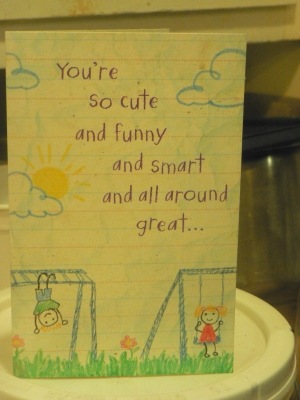 You're
so cute
and funny
and smart
and all around
great...